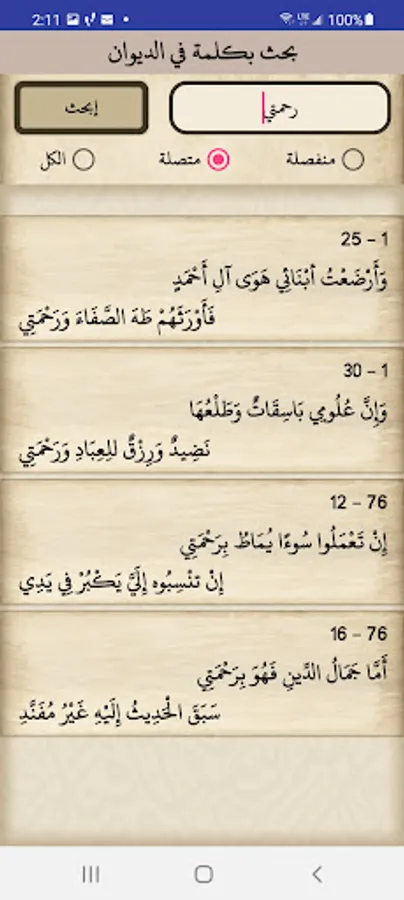 2:11
100%
بحث بكلمة في الديوان
رحمتي
إبحث
منفصلة
متصلة
الكل
1 – 25
وَأَرْضَعْتُ أَبْنَائِي هَوَى آلِ أَحْمَدٍ
فَأَوْرَثَهُمْ طَهَ الصَّفَاءَ وَرَحْمَتِي
1 – 30
وَإِنَّ عُلُومِي بَاسِقَاتٌ وَطَلْعُهَا
نَضِيدٌ وَرِزْقٌ لِلعِبَادِ وَرَحْمَتِي
76 – 12
إِنْ تَعْمَلُوا سُوءًا يُمَاطُ بِرَحْمَتِي
إِنْ تَنْسِبُوه إِلَيَّ يَكْبُرْ فِي يَدِي
76 – 16
أَمَّا جَمَالُ الدَّينِ فَهُوَ بِرَحْمَتِي
سَبَقَ الْحَدِيثُ إِلَيْهِ غَيْرُ مُفَنَّدِ